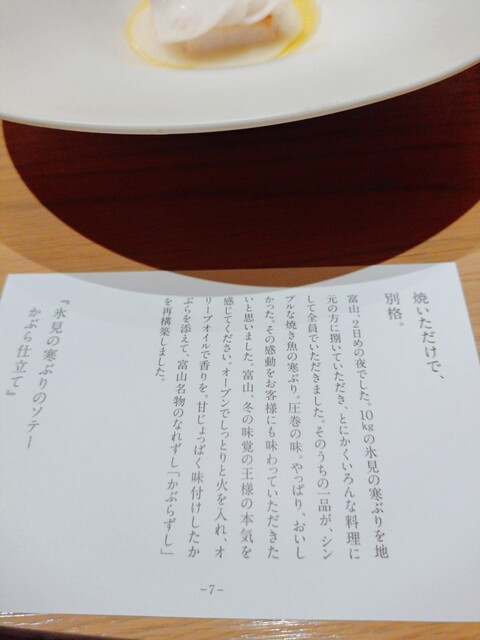 焼いただけで、
別格。
富山、2日めの夜でした。10kgの氷見の寒ぶりを地
元の方に捌いていただき、とにかくいろんな料理に
して全員でいただきました。そのうちの一品が、シン
プルな焼き魚の寒ぶり。圧巻の味。やっぱり、おいし
かった。その感動をお客様にも味わっていただきた
いと思いました。富山、冬の味覚の王様の本気を
感じてください。オーブンでしっとりと火を入れ、オ
リーブオイルで香りを。甘じょっぱく味付けしたか
ぶらを添えて、富山名物のなれずし「かぶらずし」
を再構築しました。
『氷見の寒ぶりのソテー
かぶら仕立て』
-7-